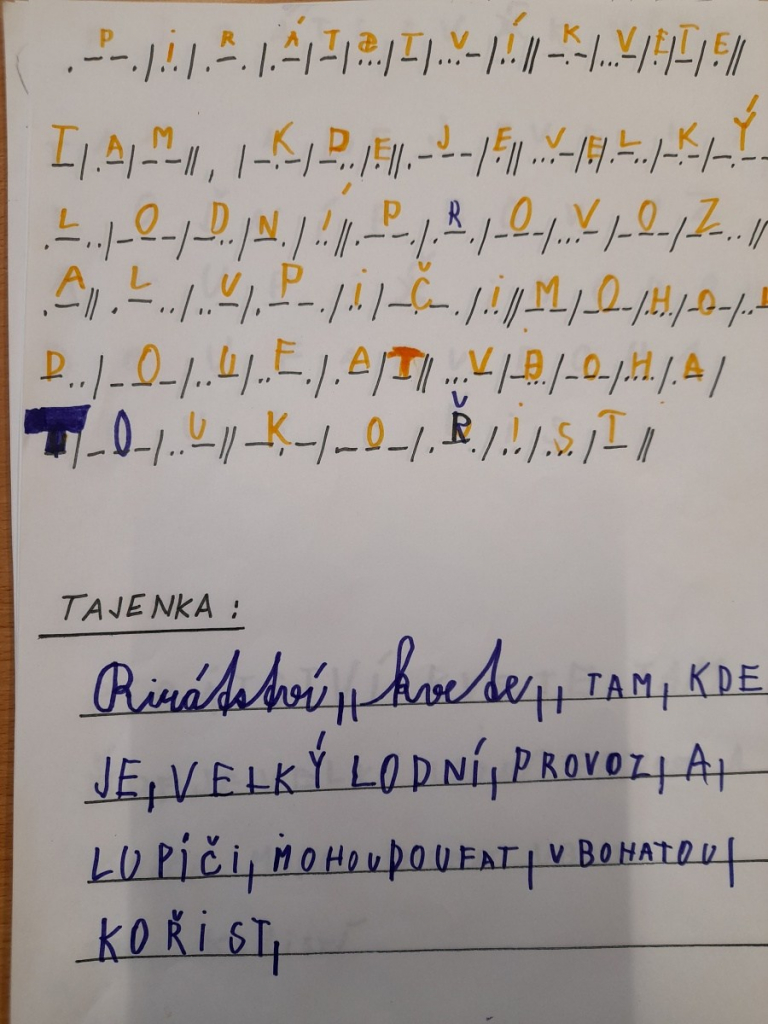 P i R Á T S T V Í K V E T E
T A M K D E J E V E L K Ý
L O D N Í P R O V O Z
A L U P i Č i M O H O
D O U F A T V B O H A
T O U K O Ř i S T
TAJENKA :
Pirátství,, kvete,, TAM, KDE
JE, VELKÝ LODNÍ, PROVOZ, A,
LUPiČi, MOHOUDOUFAT, V BOHATOU,
KOŘiST,